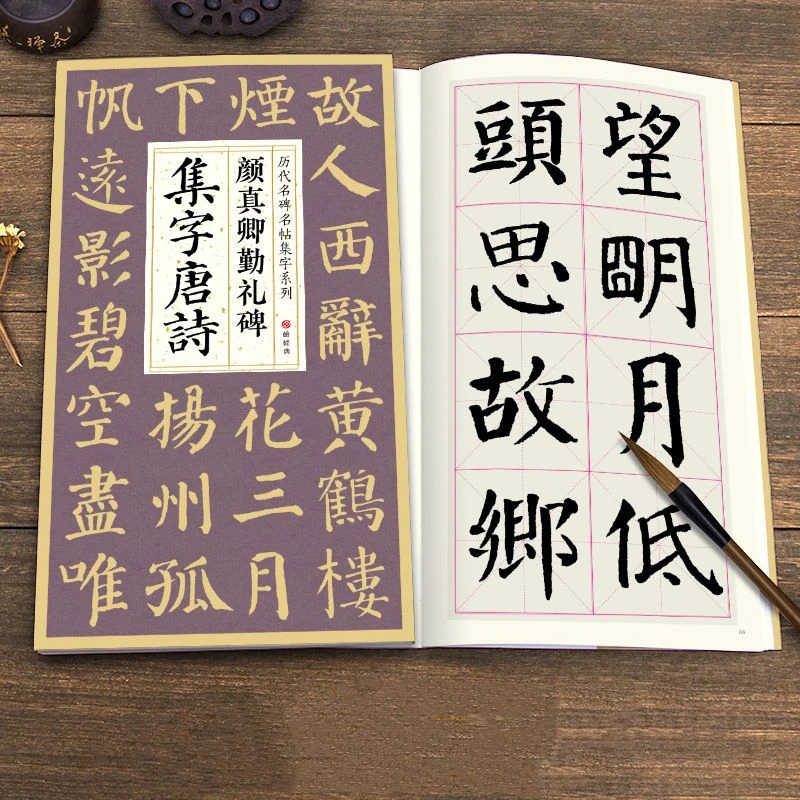 故人西辭黄鶴樓
煙花三月
下揚州孤
帆遠影碧空盡唯
历代名碑名帖集字系列
颜真卿勤礼碑
集字唐詩
望朙月低
頭思故鄉